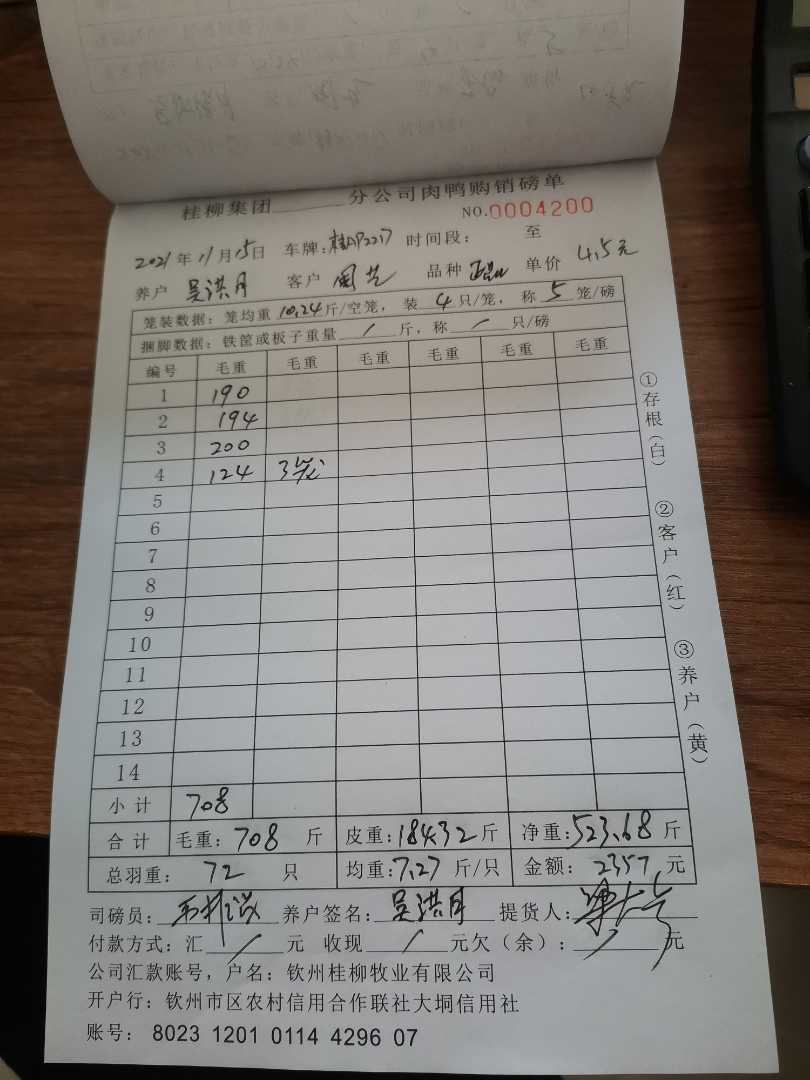 桂柳集团______分公司肉鸭购销磅单
NO.0004200
2021年11月15日 车牌: 时间段: 至
养户 吴洪月 客户 品种 单价 4.5元
笼装数据: 笼均重 10.24 斤/空笼, 装 4 只/笼, 称 5 笼/磅
捆脚数据: 铁筐或板子重量 / 斤, 称 / 只/磅
编号 毛重 毛重 毛重 毛重 毛重 毛重
1 190
2 194
3 200
4 124 3笼
5
6
7
8
9
10
11
12
13
14
小计 708
合计 毛重: 708 斤 皮重: 184.32 斤 净重: 523.68 斤
总羽重: 72 只 均重: 7.27 斤/只 金额: 2357 元
司磅员: 养户签名: 吴洪月 提货人:
付款方式: 汇 / 元 收现 / 元欠(余): / 元
公司汇款账号, 户名: 钦州桂柳牧业有限公司
开户行: 钦州市区农村信用合作联社大垌信用社
账号: 8023 1201 0114 4296 07
①存根(白)
②客户(红)
③养户(黄)